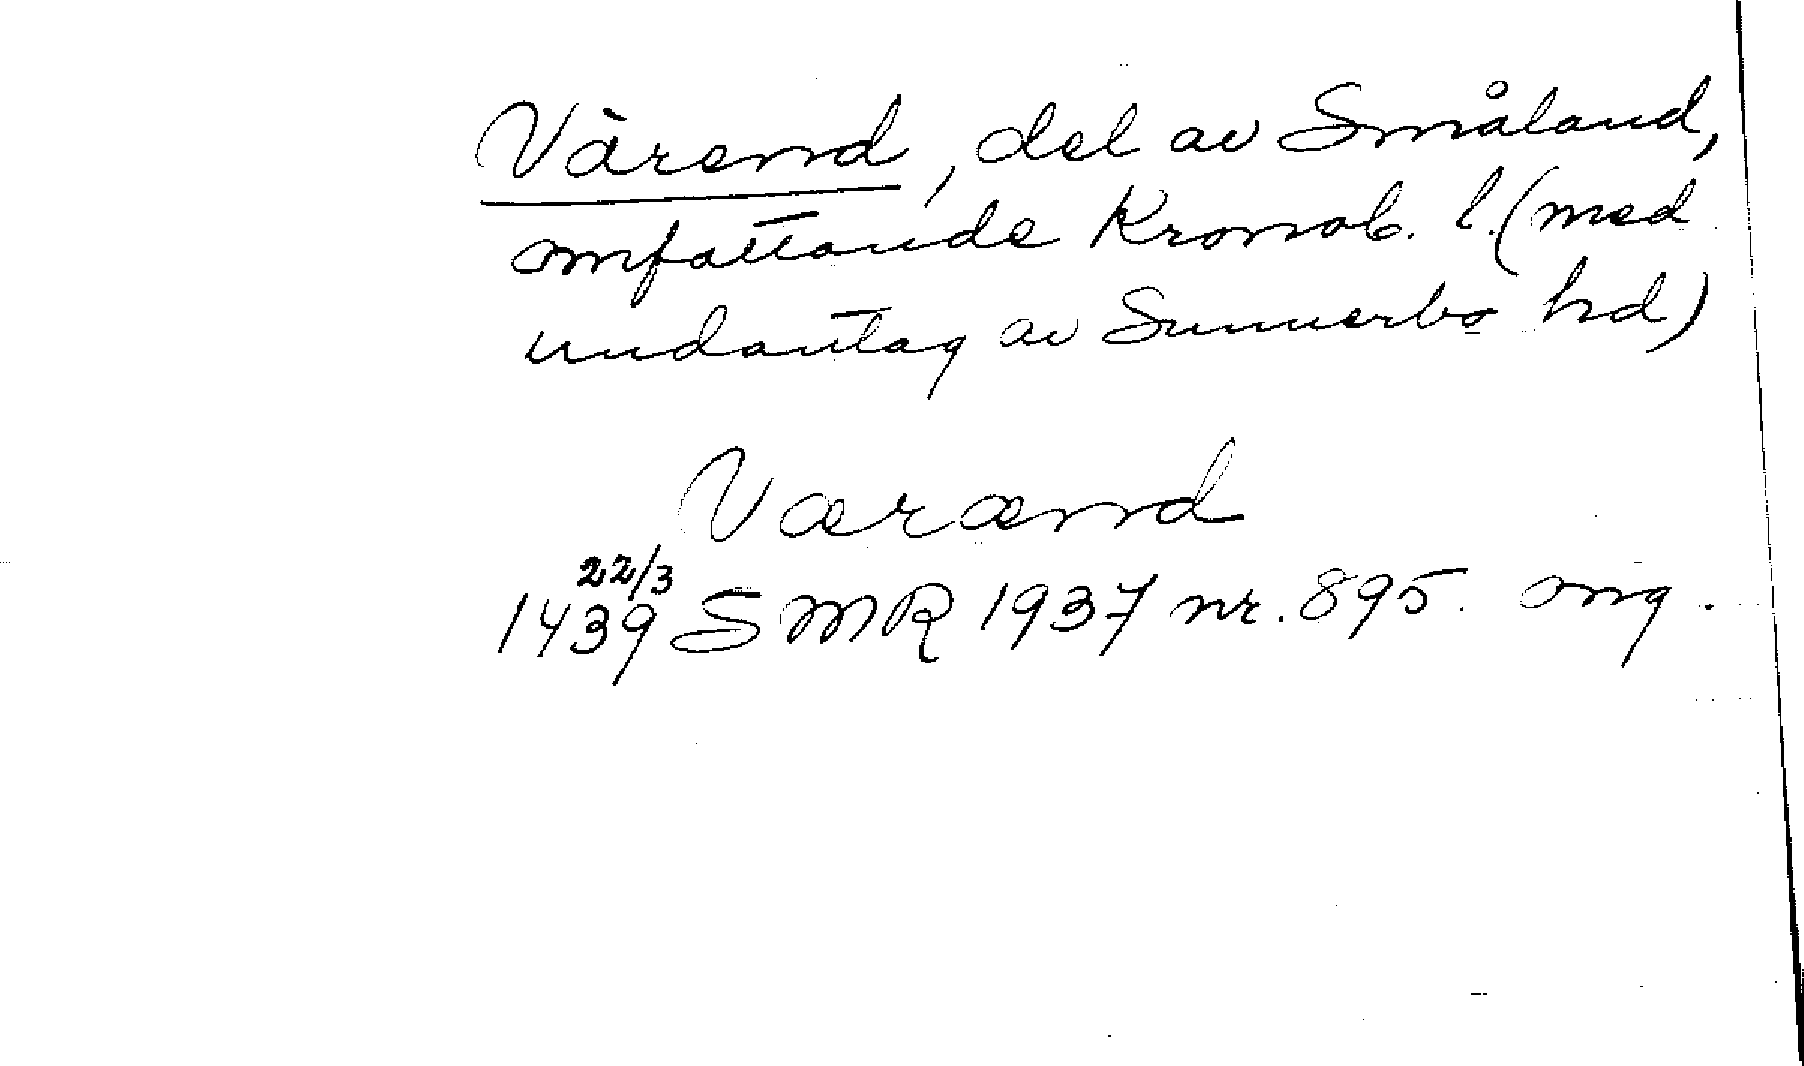 Värend, del av Småland,
omfattande Kronob. l. (med
undantag av Sunnerbo hd)
Værænd
22/3
1439 SMR 1937 nr. 895. org.